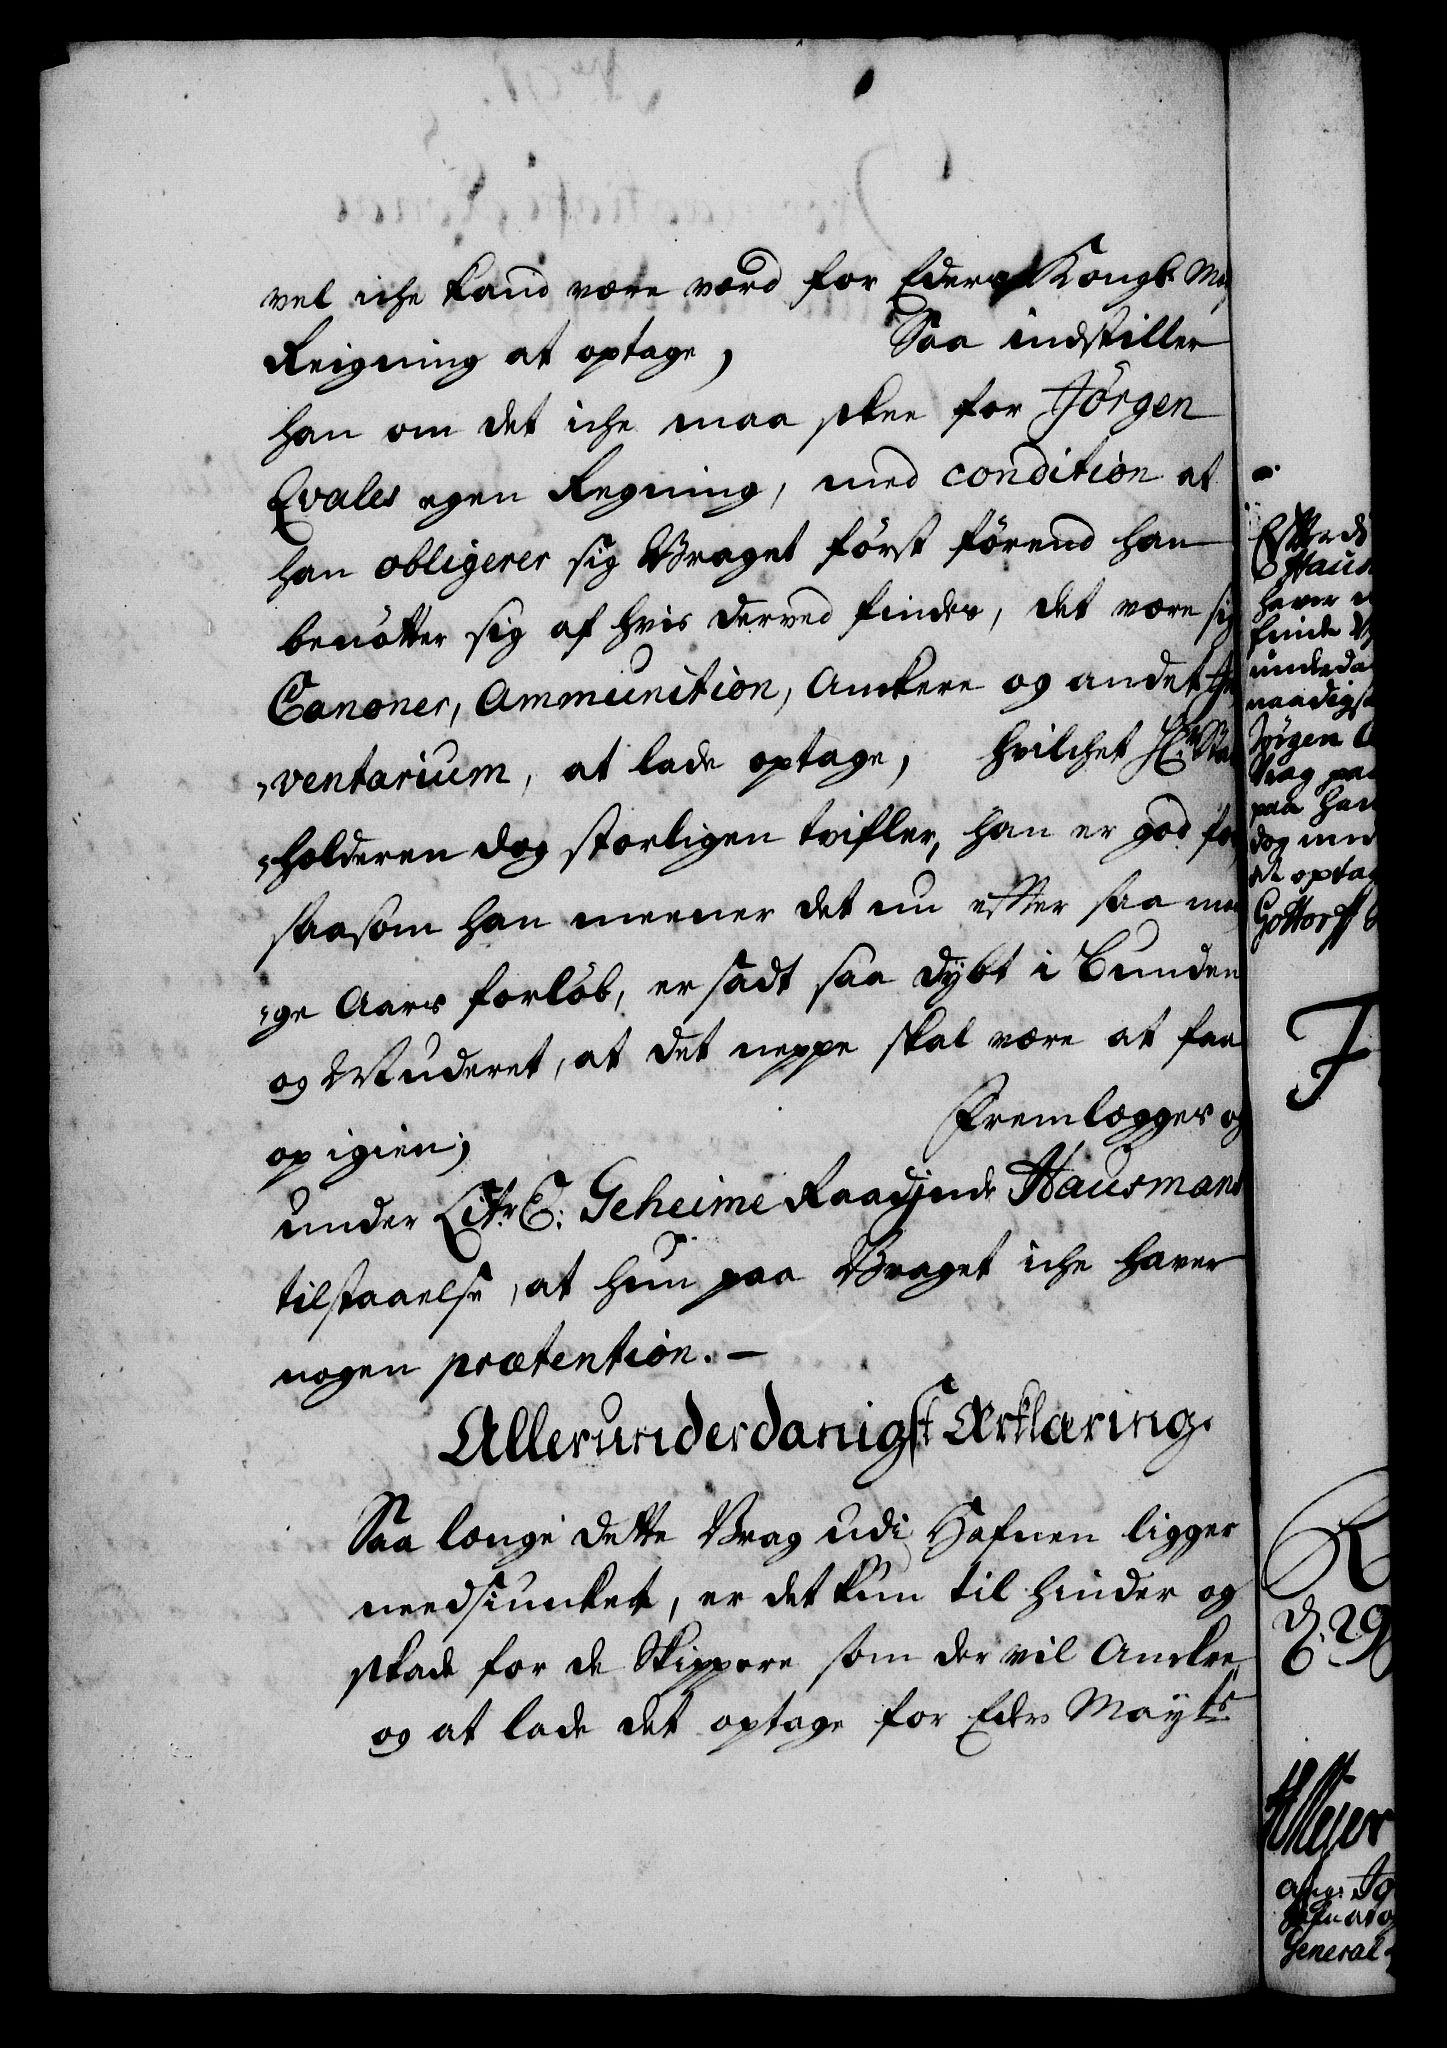 vel iche kand være værd for Eders Kongl: May
Reigning at optage, Saa indstiller
han om det iche maa skee for Jörgen
Evales egen Regning, med condition at
han obligerer sig Vraget först förend han
benötter sig af hvis derved findes, det være sig
Canoner, Ammunition, Anckere og andet In
„ventarium, at lade optage, hvilchet Hr. Stat
„holderen dog storligen tvifler, han er god for
saasom han meener det nu effter saa man
„ge Aars forlöb, er sadt saa dybt i Bunden
og Muderet, at det neppe skal være at faae
op igien; Fremlægges og
under Litr. E: Geheime Raadinde Hausmans
tilstaaelse, at hun paa Vraget iche haver
nogen prætention. —
Allerunderdanigst Erklæring.
Saa længe dette Vrag udi Hafnen ligger
needsiuncket, er det kun til hinder og
skade for de Skippere som der vil Anckre,
og at lade det optage for Eders Mayts
Efterdi
Haus
haver
finde
underda
naadigst
Jörgen
Vrag paa
paa han
dog
at optag
Gottorff
F
R
d. 29
Meyer
General